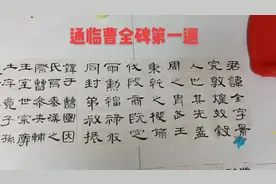 通临曹全碑第一遍
君諱全字景
完敦煌效穀
人也其先蓋
周之胄武王
秉乾之機翦
伐殷商既定
爾勳福祿攸
同封弟叔振
鐸于曹國因
氏焉秦漢之
際曹參夾輔
王室世宗廓
土斥竟子孫